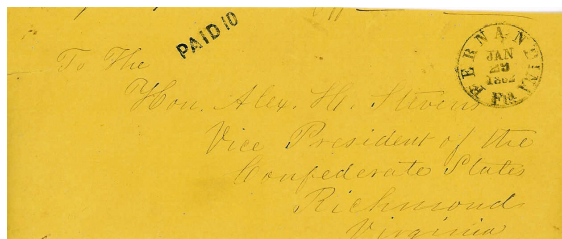 PAID 10
FERNANDINA
JAN
29
1862
Fla
To The
Hon. Alex. H. Stevens
Vice President of the
Confederate States
Richmond
Virginia